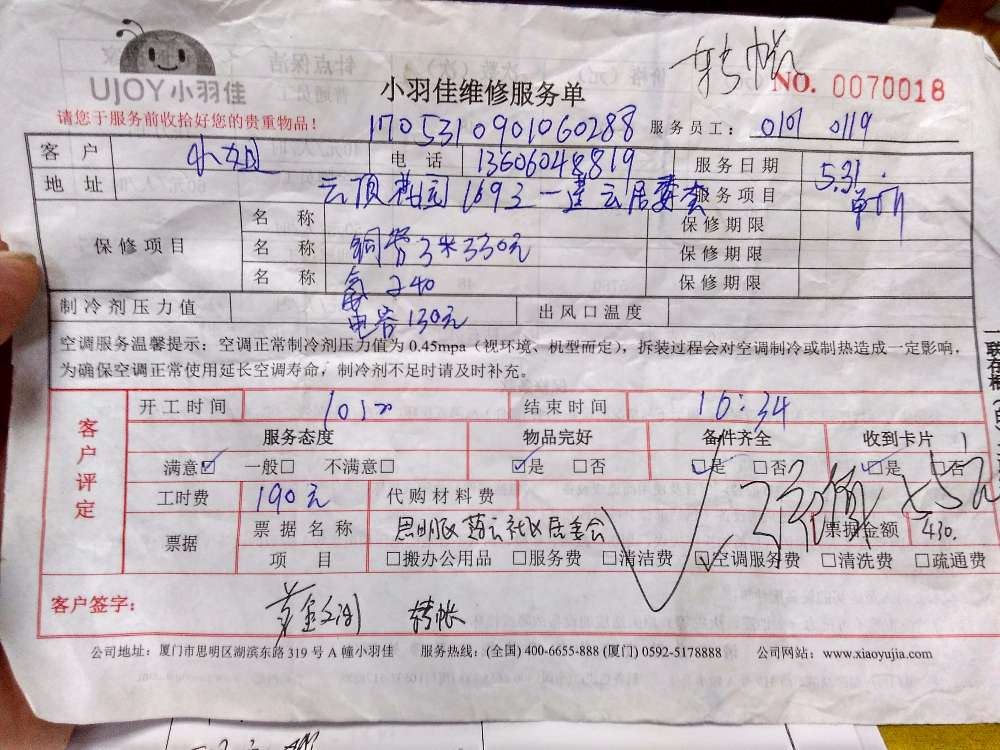 转帐
UJOY小羽佳
小羽佳维修服务单
NO. 0070018
请您于服务前收拾好您的贵重物品！
170531090106028 8
服务员工： 0101 0119
客 户 小姐 电 话 13606048819 服务日期 5.31.
地 址 1693 服务项目
保修项目
名 称 保修期限
名 称 铜管3米330元 保修期限
名 称 240 保修期限
制冷剂压力值 电容130元 出风口温度
空调服务温馨提示：空调正常制冷剂压力值为 0.45mpa（视环境、机型而定），拆装过程会对空调制冷或制热造成一定影响，
为确保空调正常使用延长空调寿命，制冷剂不足时请及时补充。
客户评定
开工时间 结束时间 16:34
服务态度 物品完好 备件齐全 收到卡片
满意☑ 一般□ 不满意□ ☑是 □否 ☑是 □否 ☑是 □否
工时费 190元 代购材料费
票据 票据名称 思明区 社区居委会 票据金额
项 目 □搬办公用品 □服务费 □清洁费 ☑空调服务费 □清洗费 □疏通费
客户签字： 转帐
公司地址：厦门市思明区湖滨东路 319 号 A 幢小羽佳 服务热线：(全国) 400-6655-888 (厦门) 0592-5178888 公司网站：www.xiaoyujia.com